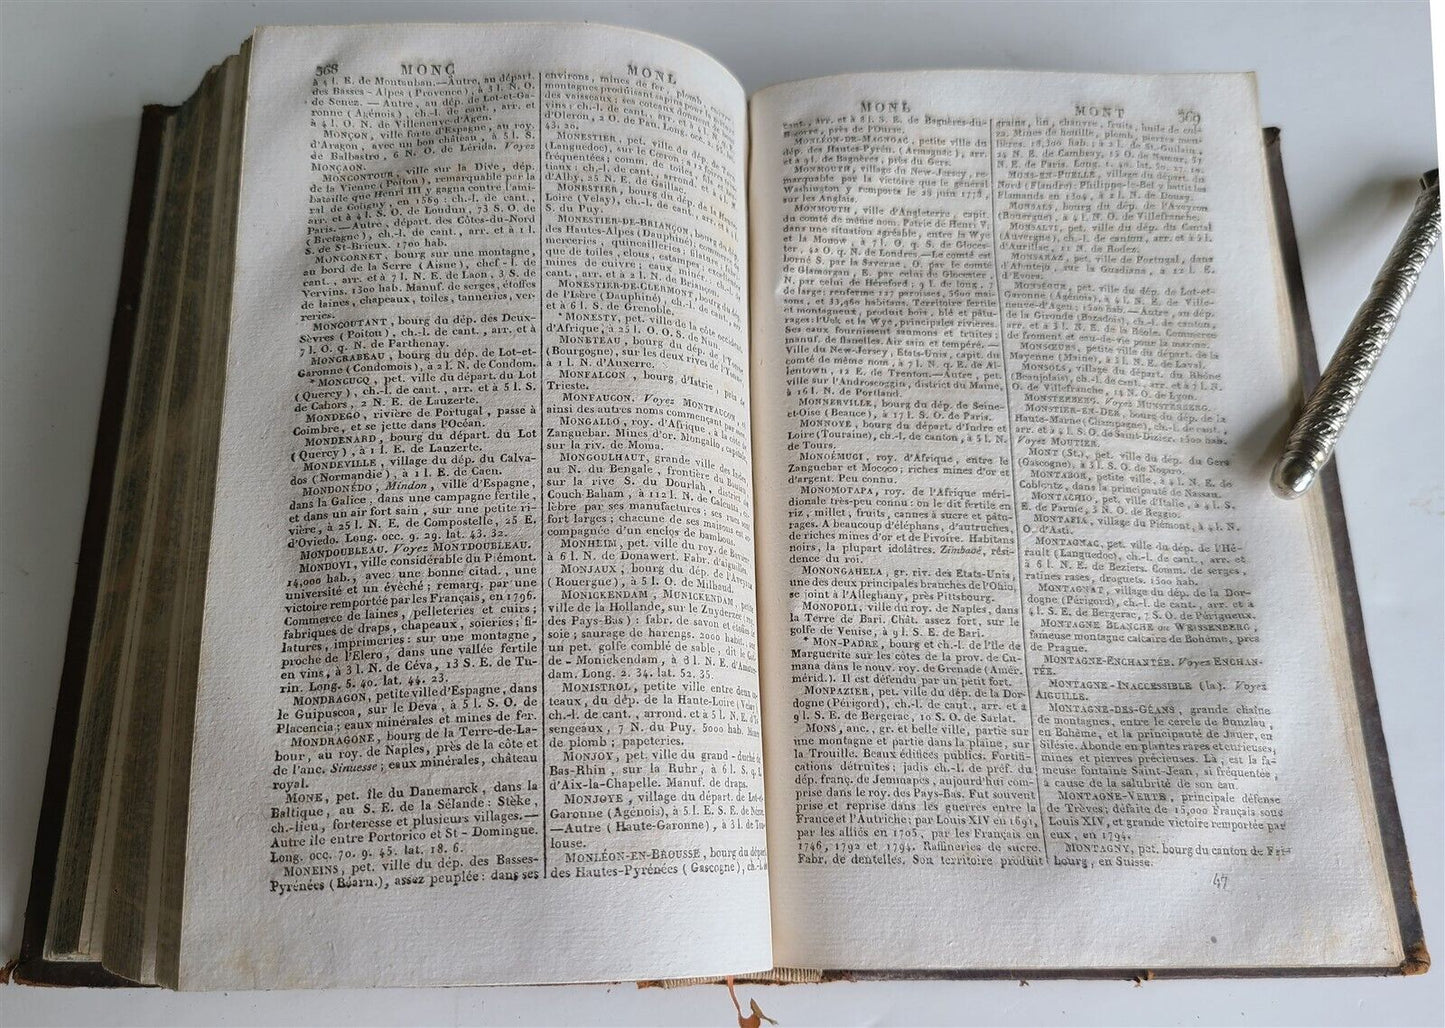 368 MONÇ MONL
à 4 l. E. de Montauban.—Autre, au départ.
des Basses-Alpes (Provence), à 3 l. N. O.
de Senez. — Autre, au dép. de Lot-et-Ga-
ronne (Agénois), ch.-l. de cant., arr. et
à 4 l. O. N. de Villeneuve-d'Agen.
MONÇON, ville forte d'Espagne, au roy.
d'Aragon, avec un bon château, à 5 l. S.
de Balbastro, 6 N. O. de Lérida. Voyez
MONÇAON.
MONCONTOUR, ville sur la Dive, dép.
de la Vienne (Poitou), remarquable par la
bataille que Henri III y gagna contre l'ami-
ral de Coligny, en 1569 : ch.-l. de cant.,
arr. et à 4 l. S. O. de Loudun, 73 S. O. de
Paris.—Autre, départ. des Côtes-du-Nord
(Bretagne), ch.-l. de cant., arr. et à 1 l.
S. de St-Brieux. 1700 hab.
MONCORNET, bourg sur une montagne,
au bord de la Serre (Aisne), chef-l. de
cant., arr. et à 7 l. N. E. de Laon, 3 S. de
Vervins. 1300 hab. Manuf. de serges, étoffes
de laines, chapeaux, toiles, tanneries, ver-
reries.
MONCOUTANT, bourg du dép. des Deux-
Sèvres (Poitou), ch.-l. de cant., arr. et à
7 l. O. q. N. de Parthenay.
MONCRABEAU, bourg du dép. de Lot-et-
Garonne (Condomois), à 2 l. N. de Condom.
* MONCUCQ, pet. ville du départ. du Lot
(Quercy), ch.-l. de cant., arr. et à 5 l. S.
de Cahors, 2 N. E. de Lauzerte.
MONDEGO, rivière de Portugal, passe à
Coimbre, et se jette dans l'Océan.
MONDENARD, bourg du départ. du Lot
(Quercy), à 1 l. E. de Lauzerte.
MONDEVILLE, village du dép. du Calva-
dos (Normandie), à 1 l. E. de Caen.
MONDONÉDO, Mindon, ville d'Espagne,
dans la Galice, dans une campagne fertile,
et dans un air fort sain, sur une petite ri-
vière, à 25 l. N. E. de Compostelle, 25 E.
d'Oviedo. Long. occ. 9. 29. lat. 43. 32.
MONDOUBLEAU. Voyez MONTDOUBLEAU.
MONDOVI, ville considérable du Piémont.
14,000 hab., avec une bonne citad., une
université et un évêché ; remarq. par une
victoire remportée par les Français, en 1796.
Commerce de laines, pelleteries et cuirs ;
fabriques de draps, chapeaux, soieries ; fi-
latures, imprimeries : sur une montagne,
proche de l'Elero, dans une vallée fertile
en vins, à 3 l. N. de Céva, 13 S. E. de Tu-
rin. Long. 5. 40. lat. 44. 23.
MONDRAGON, petite ville d'Espagne, dans
le Guipuscoa, sur le Deva, à 5 l. S. O. de
Placencia ; eaux minérales et mines de fer.
MONDRAGONE, bourg de la Terre-de-La-
bour, au roy. de Naples, près de la côte et
de l'anc. Sinuesse ; eaux minérales, château
royal.
MONE, pet. île du Danemarck, dans la
Baltique, au S. E. de la Sélande : Stèke,
ch.-lieu, forteresse et plusieurs villages.—
Autre île entre Portorico et St-Domingue.
Long. occ. 70. 9. 45. lat. 18. 6.
MONEINS, pet. ville du dép. des Basses-
Pyrénées (Béarn.), assez peuplée : dans ses
environs, mines de fer, plomb,
montagnes produisant sapins pour la
des vaisseaux ; ses coteaux donnent
vins : ch.-l. de cant., arr. et
d'Oleron, 2 O. de Pau. Long. occ.
43. 20.
MONESTIER, pet. ville du dép. du Tarn
(Languedoc), sur le Cerou ;
fréquentées ; comm. de toiles,
tiaux : ch.-l. de cant., arrond. et 4 l.
d'Alby, 25 N. E. de Gaillac.
MONESTIER, bourg du dép. de la Haute-
Loire (Velay), ch.-l. de cant., arr. et
S. du Puy.
MONESTIER-DE-BRIANÇON, bourg du dép.
des Hautes-Alpes (Dauphiné) ; commerce de
merceries, quincailleries,
que de toiles, clous, estampes ;
mines de cuivre ; eaux minér.
cant., arr. et à 2 l. N. de Briançon.
MONESTIER-DE-CLERMONT, bourg du dép.
de l'Isère (Dauphiné), ch.-l. de cant., arr.
et à 6 l. S. de Grenoble.
* MONESTY, pet. ville de la côte occident.
d'Afrique, à 25 l. O. O. S. de Nun.
MONETEAU, bourg du dép. de l'Yonne
(Bourgogne), sur les deux rives de l'Yonne,
à 1 l. N. d'Auxerre.
MONFALCON, bourg d'Istrie, près de
Trieste.
MONFAUCON. Voyez MONTFAUCON,
ainsi des autres noms commençant par
MONGALLO, roy. d'Afrique, à la côte de
Zanguebar. Mines d'or. Mongallo, capitale,
sur la riv. de Moma.
MONGOULHAUT, grande ville des Indes,
au N. du Bengale, frontière du Boutan,
sur la rive S. du Dourlah, district de
Couch-Baham, à 112 l. N. de Calcutta,
lèbre par ses manufactures ; ses rues sont
fort larges ; chacune de ses maisons est ac-
compagnée d'un enclos de bambou.
MONHEIM, pet. ville du roy. de Bavière,
à 6 l. N. de Donawert. Fabr. d'aiguilles.
MONJAUX, bourg du dép. de l'Aveyron
(Rouergue), à 5 l. O. de Milhaud.
MONICKENDAM, MUNICKENDAM, petite
ville de la Hollande, sur le Zuyderzee (roy.
des Pays-Bas) : fabr. de savon et de
soie ; saurage de harengs. 2000 hab. :
un pet. golfe comblé de sable, dit Golfe-
de-Monickendam, à 3 l. N. E. d'Amster-
dam. Long. 2. 34. lat. 52. 35.
MONISTROL, petite ville entre deux co-
teaux, du dép. de la Haute-Loire (Velay),
ch.-l. de cant., arrond. et à 5 l. N. E. d'Ys-
sengeaux, 7 N. du Puy. 5000 hab. Mines
de plomb ; papeteries.
MONJOY, pet. ville du grand-duché de
Bas-Rhin, sur la Ruhr, à 6 l. S. q. E.
d'Aix-la-Chapelle. Manuf. de draps.
MONJOYE, village du départ. de Lot-et-
Garonne (Agénois), à 5 l. E. S. E. de Nérac.
—Autre (Haute-Garonne), à 3 l. de Tou-
louse.
MONLÉON-EN-BROUSSE, bourg du départ.
des Hautes-Pyrénées (Gascogne), ch.-l. de
MONL MONT 369
cant., arr. et à 8 l. S. E. de Bagnères-du-
Bicorre, près de l'Ourse.
MONLÉON-DE-MAGNOAC, petite ville du
dép. des Hautes-Pyrén. (Armagnac), arr.
et à 9 l. de Bagnères, près du Gers.
MONMOUTH, village du New-Jersey, re-
marquable par la victoire que le général
Washington y remporta le 28 juin 1778,
sur les Anglais.
MONMOUTH, ville d'Angleterre, capit.
du comté de même nom. Patrie de Henri V,
dans une situation agréable, entre la Wye
et la Monow, à 7 l. O. q. S. de Gloces-
ter, 42 O. q. N. de Londres.—Le comté est
borné S. par la Saverne, O. par le comté
de Glamorgan, E. par celui de Glocester,
N. par celui de Héreford ; 9 l. de long, 7
de large ; renferme 127 paroisses, 5600 mai-
sons, et 33,460 habitans. Territoire fertile
et montagneux, produit bois, blé et pâtu-
rages : l'Usk et la Wye, principales rivieres.
Ses eaux fournissent saumons et truites ;
manuf. de flanelles. Air sain et tempéré.—
Ville du New-Jersey, Etats-Unis, capit. du
comté de même nom, à 7 l. N. q. E. de Al-
lentown, 12 E. de Trenton.—Autre, pet.
ville sur l'Androscoggin, district du Maine,
à 16 l. N. de Portland.
MONNERVILLE, bourg du dép. de Seine-
et-Oise (Beauce), à 17 l. S. O. de Paris.
MONNOYE, bourg du départ. d'Indre et
Loire (Touraine), ch.-l. de canton, à 5 l. N.
de Tours.
MONOÉMUGI, roy. d'Afrique, entre le
Zanguebar et Mococo ; riches mines d'or et
d'argent. Peu connu.
MONOMOTAPA, roy. de l'Afrique méri-
dionale très-peu connu : on le dit fertile en
riz, millet, fruits, cannes à sucre et pâtu-
rages. A beaucoup d'éléphans, d'autruches,
de riches mines d'or et de l'ivoire. Habitans
noirs, la plupart idolâtres. Zimbaoë, rési-
dence du roi.
MONONGAHELA, gr. riv. des Etats-Unis,
une des deux principales branches de l'Ohio,
se joint à l'Alleghany, près Pittsbourg.
MONOPOLI, ville du roy. de Naples, dans
la Terre de Bari. Chât. assez fort, sur le
golfe de Venise, à 9 l. S. E. de Bari.
* MON-PADRE, bourg et ch.-l. de l'île de
Marguerite sur les côtes de la prov. de Cu-
mana dans le nouv. roy. de Grenade (Amér.
mérid.). Il est défendu par un petit fort.
MONPAZIER, pet. ville du dép. de la Dor-
dogne (Périgord), ch.-l. de cant., arr. et à
9 l. S. E. de Bergerac, 10 S. O. de Sarlat.
MONS, anc., gr. et belle ville, partie sur
une montagne et partie dans la plaine, sur
la Trouille. Beaux édifices publics. Fortifi-
cations détruites ; jadis ch.-l. de préf. du
dép. franç. de Jemmapes, aujourd'hui com-
prise dans le roy. des Pays-Bas. Fut souvent
prise et reprise dans les guerres entre la
France et l'Autriche ; par Louis XIV en 1691,
par les alliés en 1703, par les Français en
1746, 1792 et 1794. Raffineries de sucre.
Fabr. de dentelles. Son territoire produit
grains, lin, chanvre, fruits, huile de col-
za. Mines de houille, plomb, pierres meu-
lières. 18,300 hab. : à 2 l. de St-Guilain,
14 N. E. de Cambray, 15 O. de Namur,
N. E. de Paris. Long. 1. 40. lat. 50. 27. 10.
MONS-EN-PUELLE, village du départ. du
Nord (Flandre) : Philippe-le-Bel y battit les
Flamands en 1304, à 2 l. N. de Douay.
MONSALS, bourg du dép. de l'Aveyron
(Rouergue), à 4 l. N. O. de Villefranche.
MONSALVI, pet. ville du dép. du Cantal
(Auvergne), ch.-l. de canton, arr. et à 5 l.
d'Aurillac, 11 N. de Rodez.
MONSARAZ, pet. ville de Portugal, dans
d'Alentejo, sur la Guadiana, à 12 l. E.
d'Evora.
MONSÉGUR, pet. ville du dép. de Lot-et-
Garonne (Agénois), à 4 l. N. E. de Ville-
neuve-d'Agen. 1200 hab.—Autre, au dép.
de la Gironde (Bazadois), ch.-l. de canton,
arr. et à 3 l. N. E. de la Réole. Commerce
de froment et eau-de-vie pour la marine.
MONSOEURS, petite ville du départ. de la
Mayenne (Maine), à 3 l. N. E. de Laval.
MONSOLS, bourg du départ. du Rhône
(Beaujolais), ch.-l. de canton, arr. et à 7 l. N.
O. de Villefranche, 14 N. O. de Lyon.
MONSTERBERG. Voyez MUNSTERBERG.
MONSTIER-EN-DER, bourg du dép. de la
Haute-Marne (Champagne), ch.-l. de cant.,
arr. et à 4 l. S. O. de Saint-Dizier. 1500 hab.
Voyez MOUTIER.
MONT (St.), pet. ville du dép. du Gers
(Gascogne), à 3 l. S. O. de Nogaro.
MONTABOR, petite ville, à 4 l. N. E. de
Coblentz, dans la principauté de Nassau.
MONTACHIO, pet. ville d'Italie, à 4 l. S.
E. de Parme, 3 N. O. de Reggio.
MONTAFIA, village du Piémont, à 4 l. N.
O. d'Asti.
MONTAGNAC, pet. ville du dép. de l'Hé-
rault (Languedoc), ch.-l. de cant., arr. et
à 6 l. N. E. de Beziers. Comm. de serges,
ratines rases, droguets. 1500 hab.
MONTAGNAT, village du dép. de la Dor-
dogne (Périgord), ch.-l. de cant., arr. et à
4 l. S. E. de Bergerac, 7 S. O. de Périgueux.
MONTAGNE BLANCHE ou WEISSENBERG,
fameuse montagne calcaire de Bohême, près
de Prague.
MONTAGNE-ENCHANTÉE. Voyez ENCHAN-
TÉE.
MONTAGNE-INACCESSIBLE (la). Voyez
AIGUILLE.
MONTAGNE-DES-GÉANS, grande chaîne
de montagnes, entre le cercle de Bunzlau,
en Bohême, et la principauté de Jauer, en
Silésie. Abonde en plantes rares et curieuses,
mines et pierres précieuses. Là, est la fa-
meuse fontaine Saint-Jean, si fréquentée,
à cause de la salubrité de son eau.
MONTAGNE-VERTE, principale défense
de Trèves ; défaite de 15,000 Français sous
Louis XIV, et grande victoire remportée par
eux, en 1794.
MONTAGNY, pet. bourg du canton de Fri-
bourg, en Suisse.
47